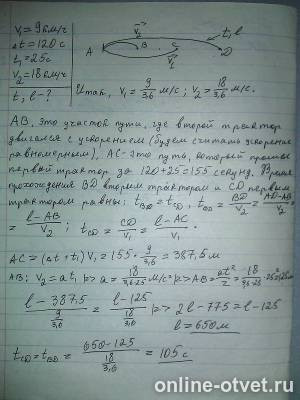 V₁ = 9 км/ч
Δt = 120 с
t₁ = 25 с
V₂ = 18 км/ч
t, l - ?
A B C D
V₂ V₁
t, l
Итак, V₁ = 9/3,6 м/с; V₂ = 18/3,6 м/с.
AB, это участок пути, где второй трактор
двигался с ускорением (будем считать ускорение
равномерным), AC - это путь, который прошел
первый трактор за 120+25=155 секунд. Время
прохождения BD вторым трактором и CD первым
трактором равны: t_BD = t_CD, t_BD = BD/V₂ = AD-AB/V₂ =
= l-AB/V₂; t_CD = CD/V₁ = l-AC/V₁.
AC = (Δt+t₁)V₁ = 155 · 9/3,6 = 387,5 м
AB: V₂ = at₁ => a = 18/3,6·25 м/с² => AB = at²/2 =
l-387,5 / 9/3,6 = l-125 / 18/3,6 => 2l-775 = l-125
l = 650 м
t_CD = t_BD = 650-125 / 18/3,6 = 105 с
online-otvet.ru